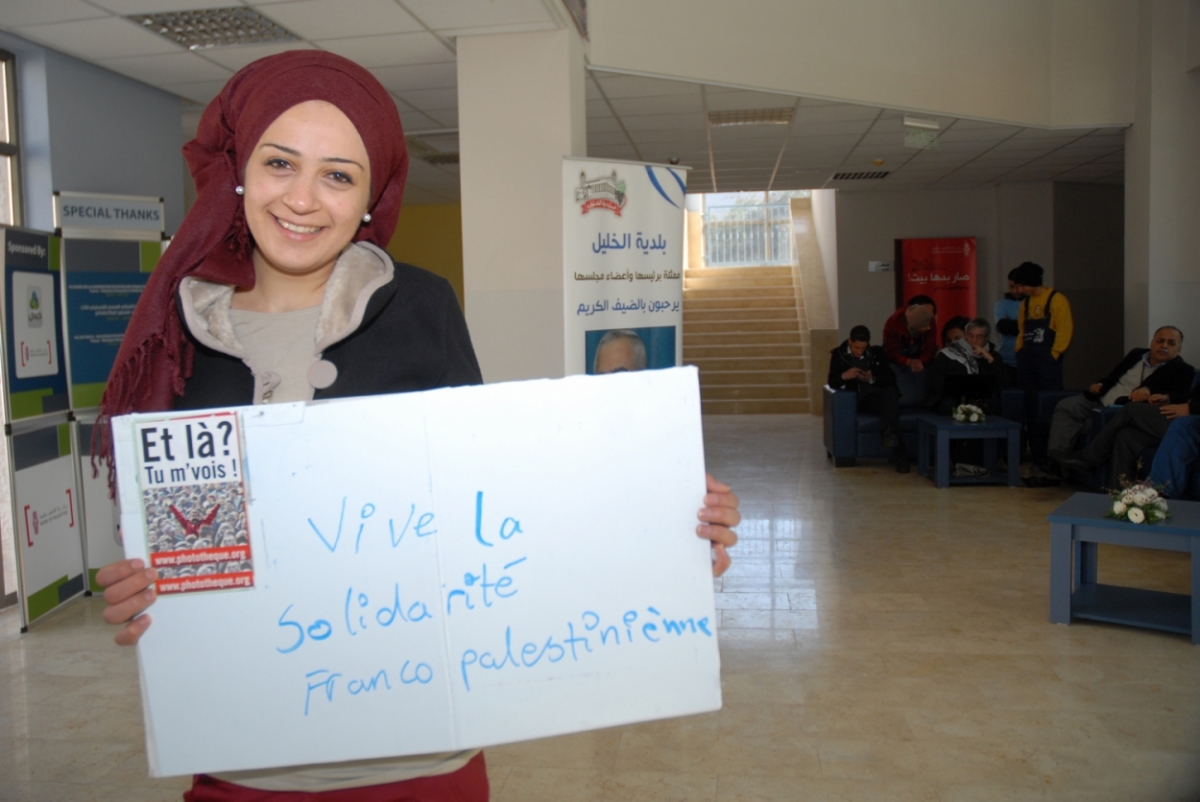 SPECIAL THANKS
Sponsored By:
بلدية الخليل
ممثلة برئيسها وأعضاء مجلسها
يرحبون بالضيف الكريم
صار بدها بيت!
Et là?
Tu m'vois !
www.phototheque.org
www.phototheque.org
Vive la
Solidarité
Franco palestiniènne